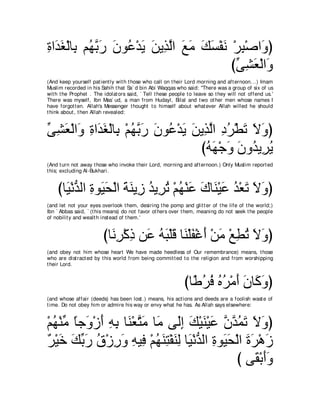 (وَاصْبِرْ نَفْسَكَ مَعَ الَّذِينَ يَدْعُونَ رَبَّهُم بِالْغَدَاةِ
وَالْعَشِىِّ)
(And keep yourself patiently with those who call on their Lord morning and afternoon...) Imam
Muslim recorded in his Sahih that Sa`d bin Abi Waqqas who said: "There was a group of six of us
with the Prophet . The idolators said, `Tell these people to leave so they will not offend us.'
There was myself, Ibn Mas`ud, a man from Hudayl, Bilal and two other men whose names I
have forgotten. Allah's Messenger thought to himself about whatever Allah willed he should
think about, then Allah revealed:
(وَلاَ تَطْرُدِ الَّذِينَ يَدْعُونَ رَبَّهُمْ بِالْغَدَاةِ وَالْعَشِىِّ
يُرِيدُونَ وَجْهَهُ)
(And turn not away those who invoke their Lord, morning and afternoon.) Only Muslim reported
this; excluding Al-Bukhari.
(وَلاَ تَعْدُ عَيْنَاكَ عَنْهُمْ تُرِيدُ زِينَةَ الْحَيَوةِ الدُّنْيَا)
(and let not your eyes overlook them, desiring the pomp and glitter of the life of the world;)
Ibn `Abbas said, `(this means) do not favor others over them, meaning do not seek the people
of nobility and wealth instead of them.'
(وَلاَ تُطِعْ مَنْ أَغْفَلْنَا قَلْبَهُ عَن ذِكْرِنَا)
(and obey not him whose heart We have made heedless of Our remembrance) means, those
who are distracted by this world from being committed to the religion and from worshipping
their Lord.
(وَكَانَ أَمْرُهُ فُرُطًا)
(and whose affair (deeds) has been lost.) means, his actions and deeds are a foolish waste of
time. Do not obey him or admire his way or envy what he has. As Allah says elsewhere:
(وَلاَ تَمُدَّنَّ عَيْنَيْكَ إِلَى مَا مَتَّعْنَا بِهِ أَزْوَجاً مِّنْهُمْ
زَهْرَةَ الْحَيَوةِ الدُّنْيَا لِنَفْتِنَهُمْ فِيهِ وَرِزْقُ رَبِّكَ خَيْرٌ
وَأَبْقَى )